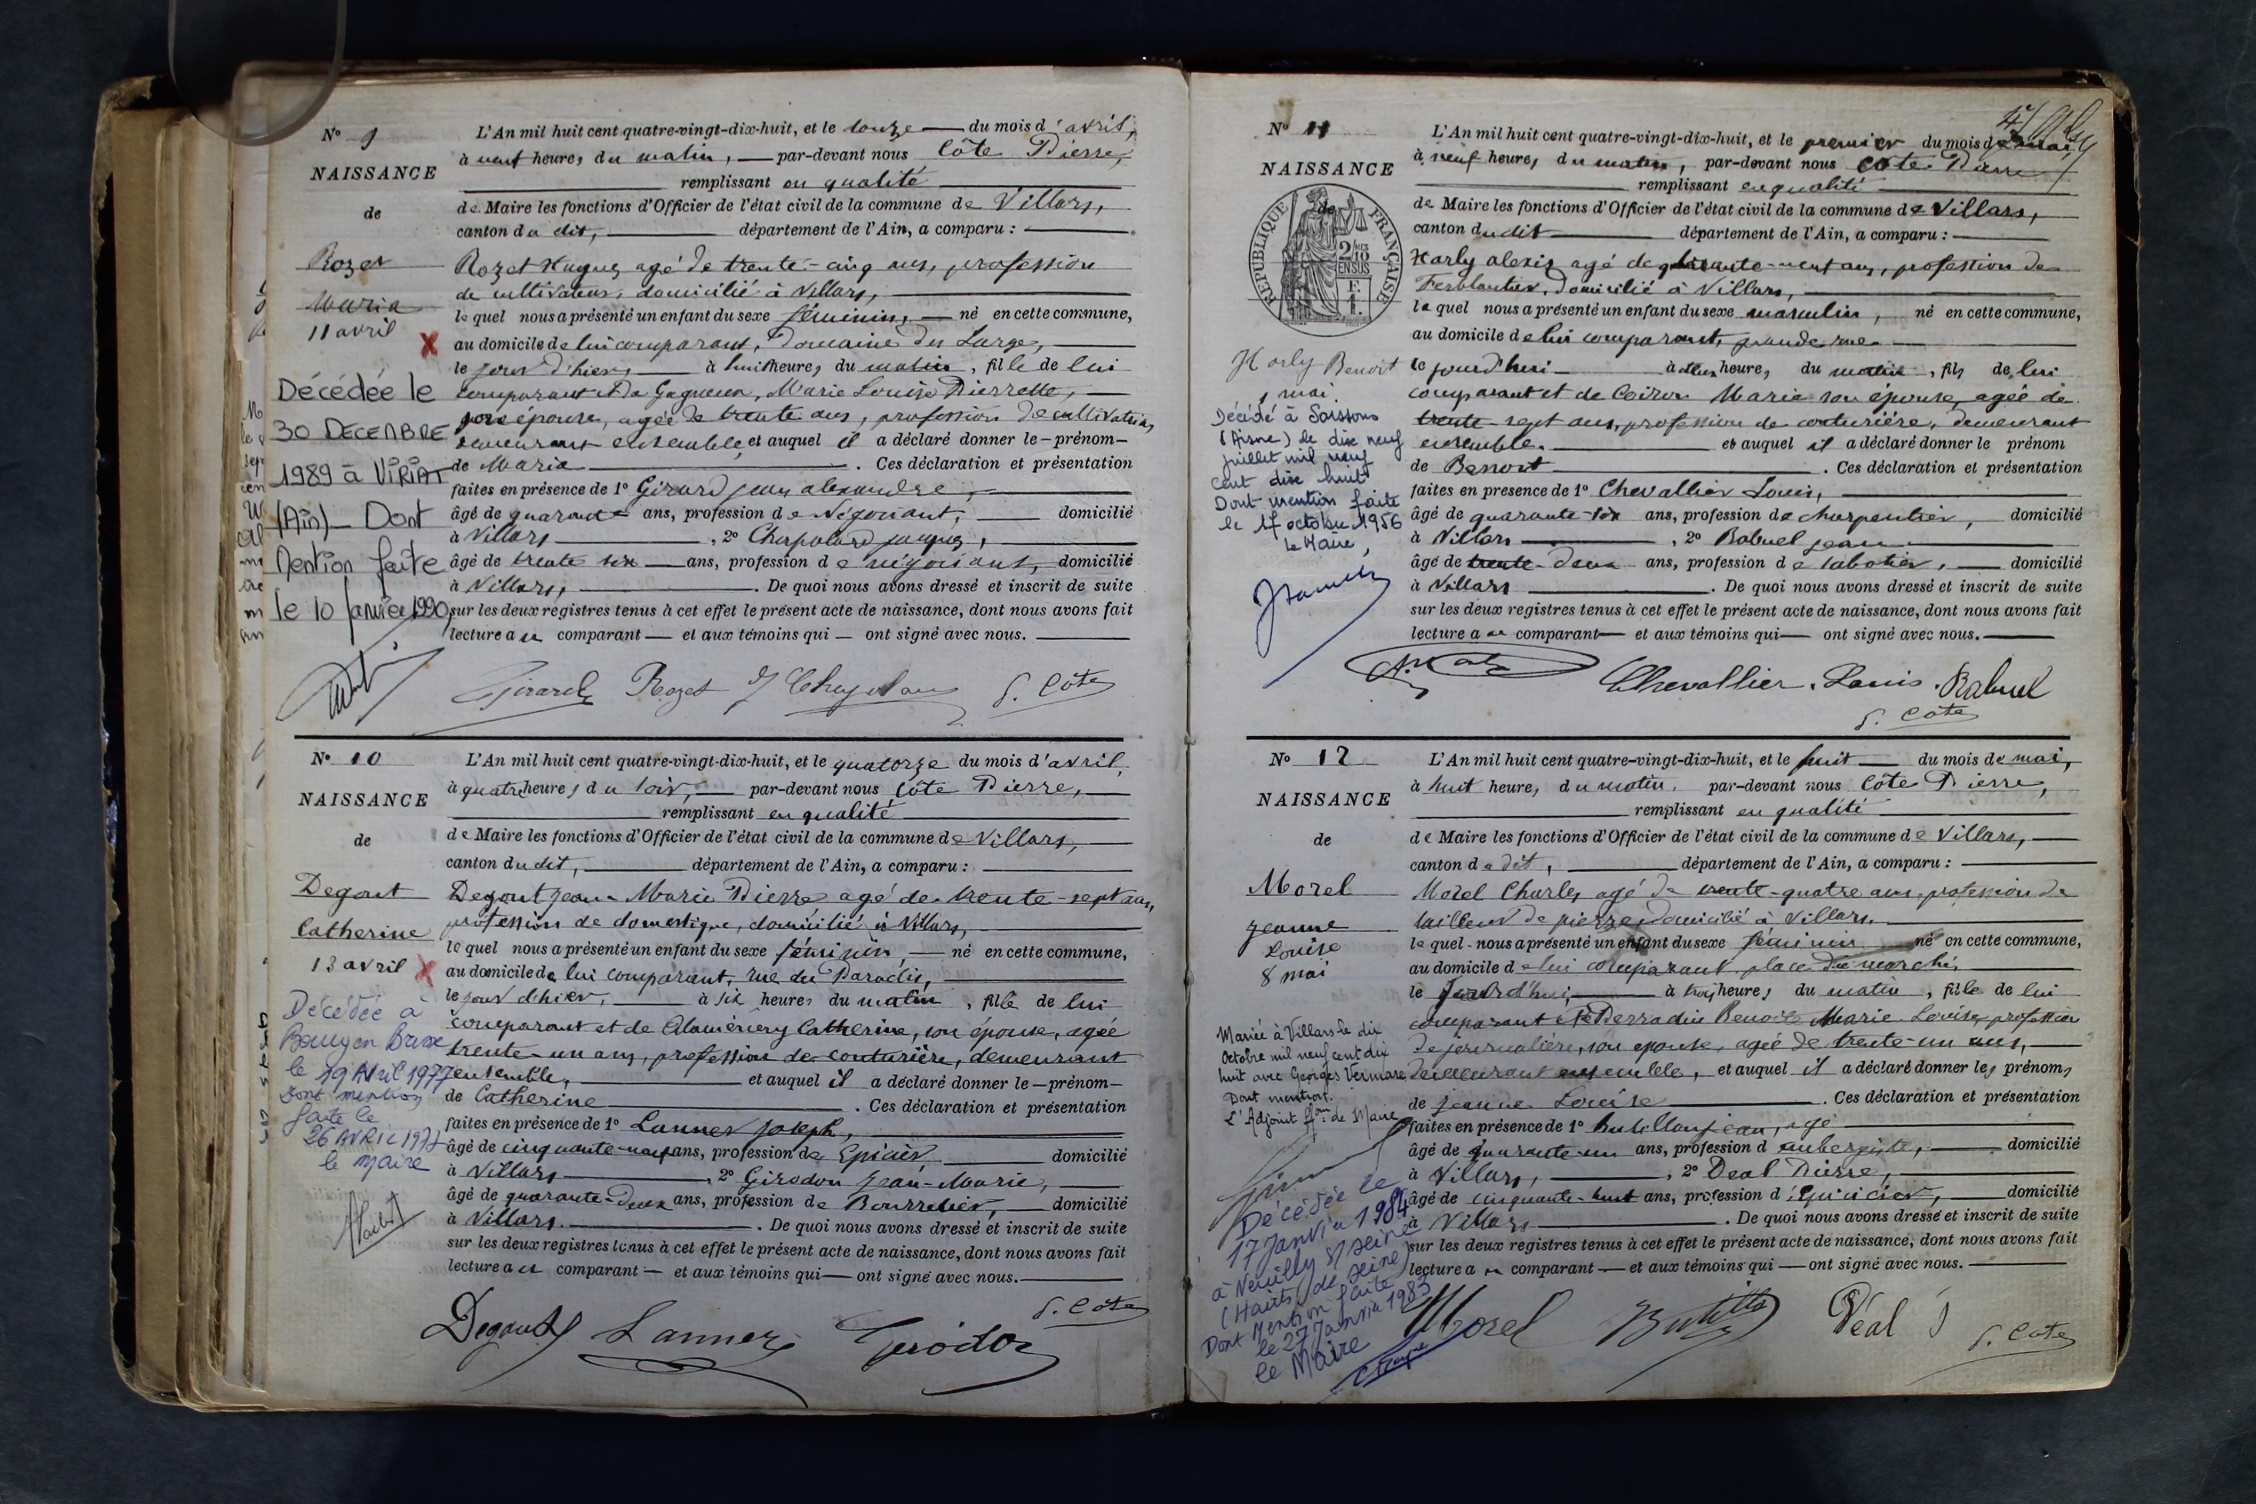 N° 9
NAISSANCE
de
Rozet
Maria
11 avril
Décédée le
30 DECEMBRE
1989 à VIRIAT
(Ain) _ Dont
Mention faite
le 10 Janvier 1990
L'An mil huit cent quatre-vingt-dix-huit, et le douze du mois d'avril,
à neuf heures du matin, par-devant nous Côte Pierre,
remplissant en qualité
de Maire les fonctions d'Officier de l'état civil de la commune de Villars,
canton du dit, département de l'Ain, a comparu :
Rozet Hugues agé de trente-cinq ans, profession
de cultivateur, domicilié à Villars,
le quel nous a présenté un enfant du sexe féminin, né en cette commune,
au domicile de lui comparant, Domaine du Large,
le jour d'hier, à huit heures du matin, fille de lui
comparant et de Marie Louise Pierrette,
son épouse, agée de trente ans, profession de cultivatrice,
demeurant ensemble, et auquel il a déclaré donner le prénom
de Maria. Ces déclaration et présentation
faites en présence de 1° Girard Jean Alexandre,
âgé de quarante ans, profession de Négociant, domicilié
à Villars, 2° Jacques,
âgé de trente six ans, profession de négociant, domicilié
à Villars, . De quoi nous avons dressé et inscrit de suite
sur les deux registres tenus à cet effet le présent acte de naissance, dont nous avons fait
lecture au comparant et aux témoins qui ont signé avec nous.
Girard Rozet P. Côte
N° 10
NAISSANCE
de
Degout
Catherine
13 avril
Décédée à
le 19 Avril 1977
Dont mention
faite le
26 AVRIL 1977
le Maire
L'An mil huit cent quatre-vingt-dix-huit, et le quatorze du mois d'avril,
à quatre heures du soir, par-devant nous Côte Pierre,
remplissant en qualité
de Maire les fonctions d'Officier de l'état civil de la commune de Villars,
canton du dit, département de l'Ain, a comparu :
Degout Jean Marie Pierre agé de trente-sept ans,
profession de domestique, domicilié à Villars,
le quel nous a présenté un enfant du sexe féminin, né en cette commune,
au domicile de lui comparant, rue du Paradis,
le jour d'hier, à six heures du matin, fille de lui
comparant et de Catherine, son épouse, agée
trente-un ans, profession de couturière, demeurant
ensemble, et auquel il a déclaré donner le prénom
de Catherine. Ces déclaration et présentation
faites en présence de 1° Lanner Joseph,
âgé de cinquante-neuf ans, profession de Epicier, domicilié
à Villars, 2° Girodon Jean-Marie,
âgé de quarante-deux ans, profession de Bourrelier, domicilié
à Villars. De quoi nous avons dressé et inscrit de suite
sur les deux registres tenus à cet effet le présent acte de naissance, dont nous avons fait
lecture au comparant et aux témoins qui ont signé avec nous.
P. Côte
Degout Lanner Girodon
N° 11
NAISSANCE
de
REPUBLIQUE FRANÇAISE
2/10 EN SUS
Harly Benoit
1 mai
Décédé à Soissons
(Aisne) le dix neuf
juillet mil neuf
cent dix huit
Dont mention faite
le 17 octobre 1956
Le Maire,
L'An mil huit cent quatre-vingt-dix-huit, et le premier du mois de mai,
à neuf heures du matin, par-devant nous Côte Pierre
remplissant en qualité
de Maire les fonctions d'Officier de l'état civil de la commune de Villars,
canton du dit département de l'Ain, a comparu :
Harly Alexis agé de quarante-neuf ans, profession de
Ferblantier, domicilié à Villars,
le quel nous a présenté un enfant du sexe masculin, né en cette commune,
au domicile de lui comparant, grande rue
le jourd'hui à deux heures du matin, fils de lui
comparant et de Coiron Marie son épouse, agée de
trente-sept ans, profession de couturière, demeurant
ensemble. et auquel il a déclaré donner le prénom
de Benoit. Ces déclaration et présentation
faites en présence de 1° Chevallier Louis,
âgé de quarante-six ans, profession de charpentier, domicilié
à Villars, 2° Rabuel Jean
âgé de trente-deux ans, profession de sabotier, domicilié
à Villars. De quoi nous avons dressé et inscrit de suite
sur les deux registres tenus à cet effet le présent acte de naissance, dont nous avons fait
lecture au comparant et aux témoins qui ont signé avec nous.
Chevallier. Louis. Rabuel
P. Côte
N° 12
NAISSANCE
de
Morel
Jeanne
Louise
8 mai
Mariée à Villars le dix
Octobre mil neuf cent dix
huit avec Georges Vermare
Dont mention.
L'Adjoint ff.on de Maire
Décédée le
17 Janvier 1984
à Neuilly s/ seine
(Hauts de seine)
Dont Mention faite
le 27 Janvier 1983
le Maire
L'An mil huit cent quatre-vingt-dix-huit, et le huit du mois de mai,
à huit heures du matin, par-devant nous Côte Pierre,
remplissant en qualité
de Maire les fonctions d'Officier de l'état civil de la commune de Villars,
canton du dit, département de l'Ain, a comparu :
Morel Charles agé de trente-quatre ans, profession de
tailleur de pierre, domicilié à Villars,
le quel nous a présenté un enfant du sexe féminin né en cette commune,
au domicile de lui comparant place du marché,
le jourd'hui, à trois heures du matin, fille de lui
comparant et de Perradin Benoite Marie Louise, profession
de journalière, son épouse, agée de trente-un ans,
demeurant ensemble, et auquel il a déclaré donner les prénoms
de Jeanne Louise. Ces déclaration et présentation
faites en présence de 1° Butillon Jean, agé
âgé de quarante-un ans, profession d'aubergiste, domicilié
à Villars, 2° Déal Pierre,
âgé de cinquante-huit ans, profession d'épicier, domicilié
à Villars. De quoi nous avons dressé et inscrit de suite
sur les deux registres tenus à cet effet le présent acte de naissance, dont nous avons fait
lecture au comparant et aux témoins qui ont signé avec nous.
Morel Déal P. Côte